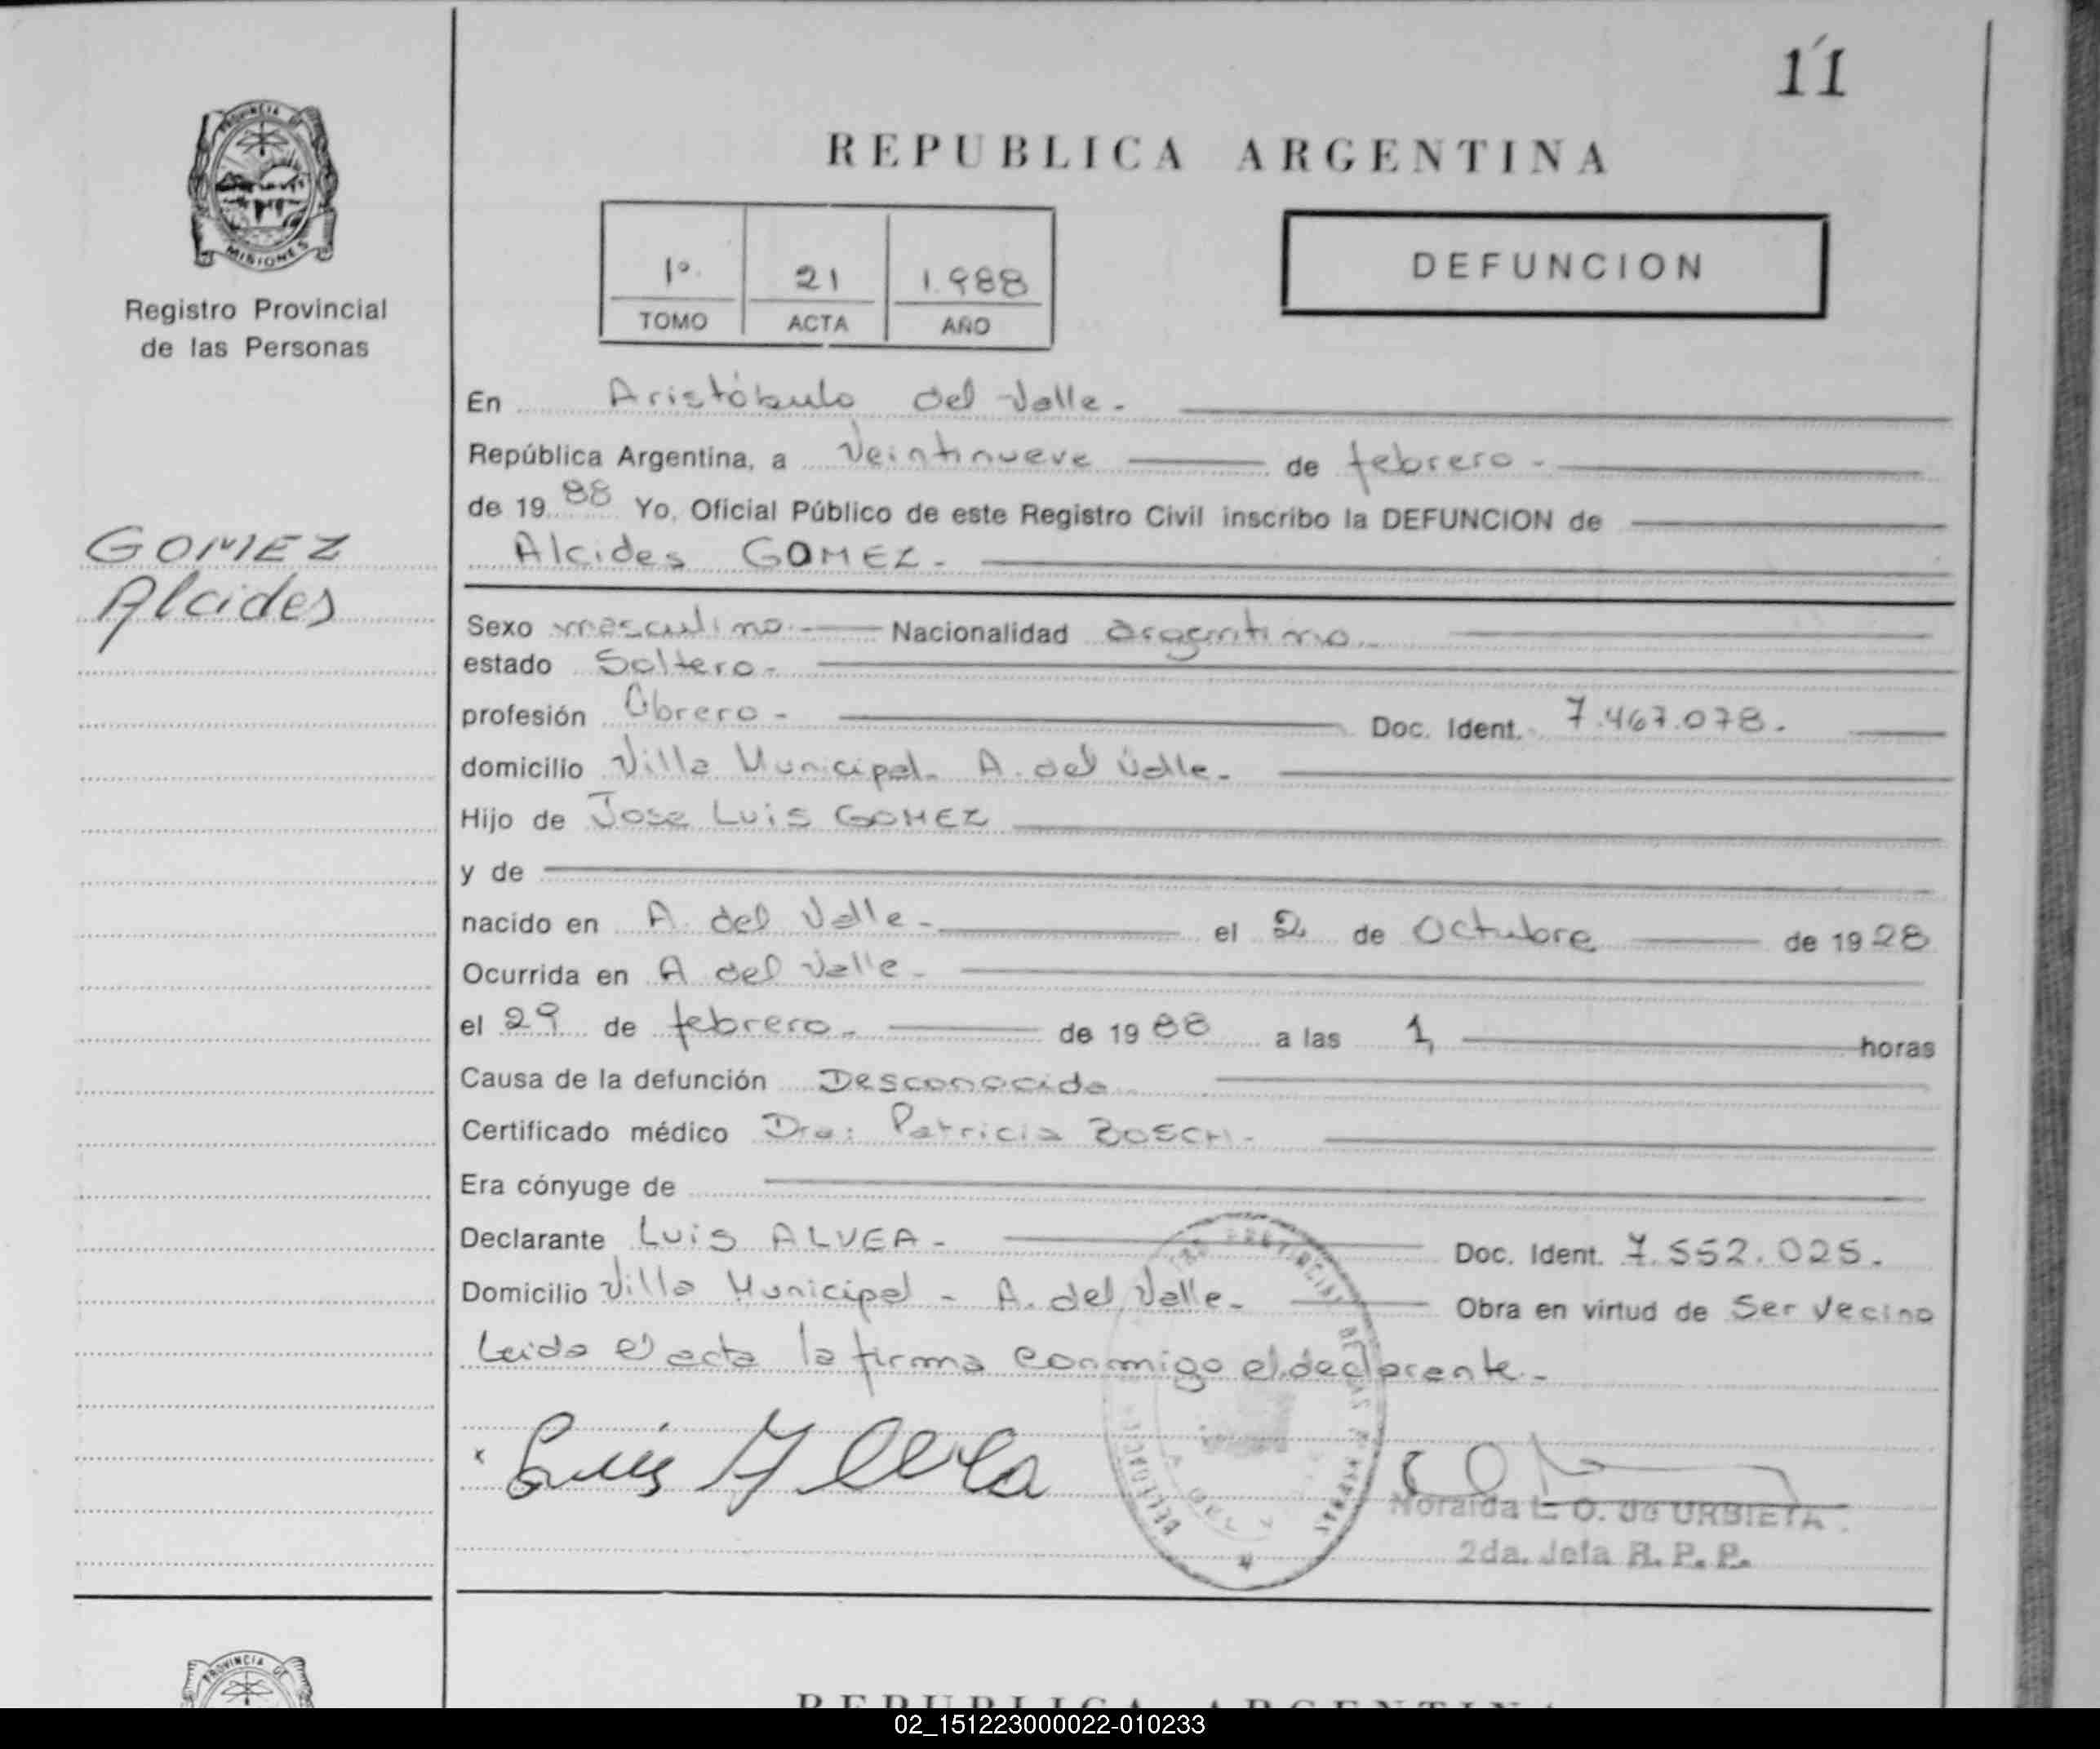 11
PROVINCIA DE
MISIONES
Registro Provincial
de las Personas
REPUBLICA ARGENTINA
1º. 21 1.988
TOMO ACTA AÑO
DEFUNCION
En Aristóbulo del Valle.
República Argentina, a Veintinueve de febrero.
de 19 88 Yo, Oficial Público de este Registro Civil inscribo la DEFUNCION de
GOMEZ
Alcides
Alcides GOMEZ.
Sexo masculino. Nacionalidad argentino.
estado Soltero.
profesión Obrero. Doc. Ident. 7.467.078.
domicilio Villa Municipal. A. del Valle.
Hijo de Jose Luis GOMEZ
y de
nacido en A. del Valle. el 2 de Octubre de 19 28
Ocurrida en A del Valle.
el 29 de febrero. de 19 88 a las 1, horas
Causa de la defunción Desconocida
Certificado médico Dra: Patricia BOSCH.
Era cónyuge de
Declarante Luis ALVEA. Doc. Ident. 7.552.025.
Domicilio Villa Municipal - A. del Valle. Obra en virtud de Ser Vecino
Leida el acta la firma conmigo el declarante.
x Luis
Noraida L. O. de URBIETA
2da. Jefa R. P. P.
PROVINCIA DE
REPUBLICA ARGENTINA
02_151223000022-010233